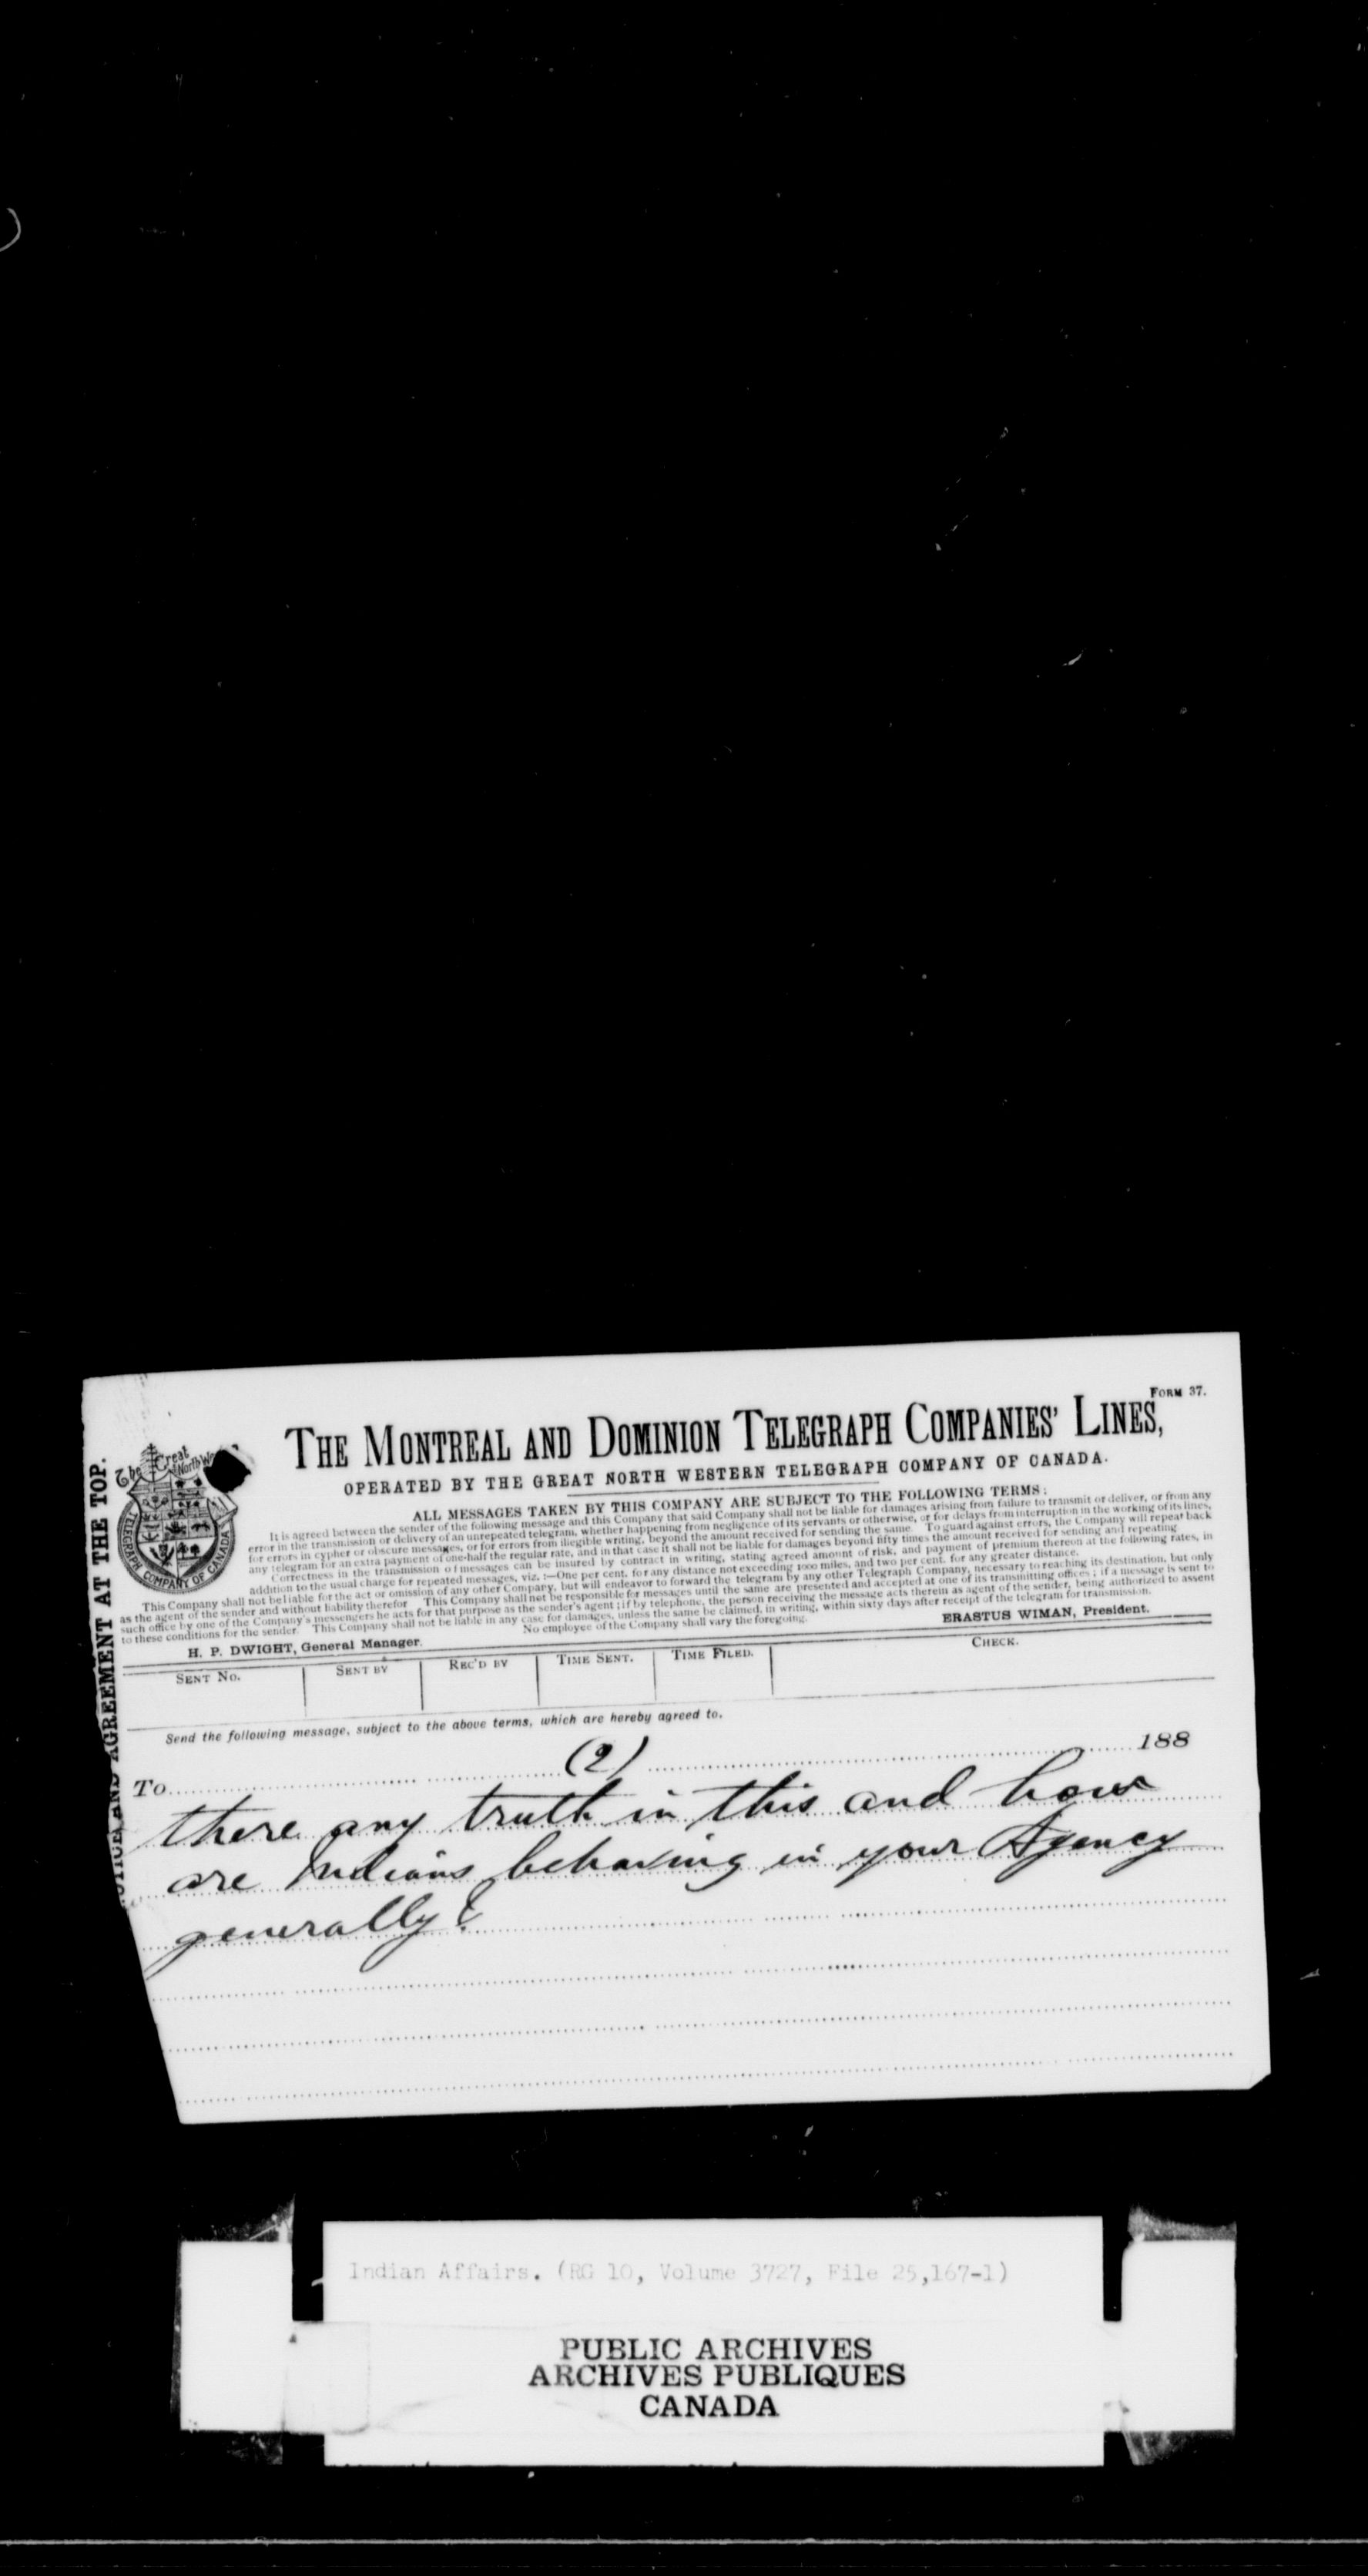 FORM 37.
THE MONTREAL AND DOMINION TELEGRAPH COMPANIES' LINES,
OPERATED BY THE GREAT NORTH WESTERN TELEGRAPH COMPANY OF CANADA.
The Great North We
TELEGRAPH COMPANY OF CANADA
AGREEMENT AT THE TOP.
ALL MESSAGES TAKEN BY THIS COMPANY ARE SUBJECT TO THE FOLLOWING TERMS:
It is agreed between the sender of the following message and this Company that said Company shall not be liable for damages arising from failure to transmit or deliver, or from any
error in the transmission or delivery of an unrepeated telegram, whether happening from negligence of its servants or otherwise, or for delays from interruption in the working of its lines,
for errors in cypher or obscure messages, or for errors from illegible writing, beyond the amount received for sending the same. To guard against errors, the Company will repeat back
any telegram for an extra payment of one-half the regular rate, and in that case it shall not be liable for damages beyond fifty times the amount received for sending and repeating
Correctness in the transmission of messages can be insured by contract in writing, stating agreed amount of risk, and payment of premium thereon at the following rates, in
addition to the usual charge for repeated messages, viz. :—One per cent. for any distance not exceeding 1000 miles, and two per cent. for any greater distance.
This Company shall not be liable for the act or omission of any other Company, but will endeavor to forward the telegram by any other Telegraph Company, necessary to reaching its destination, but only
as the agent of the sender and without liability therefor This Company shall not be responsible for messages until the same are presented and accepted at one of its transmitting offices ; if a message is sent to
such office by one of the Company's messengers he acts for that purpose as the sender's agent ; if by telephone, the person receiving the message acts therein as agent of the sender, being authorized to assent
to these conditions for the sender. This Company shall not be liable in any case for damages, unless the same be claimed, in writing, within sixty days after receipt of the telegram for transmission.
No employee of the Company shall vary the foregoing.
H. P. DWIGHT, General Manager. ERASTUS WIMAN, President.
SENT NO. SENT BY REC'D BY TIME SENT. TIME FILED. CHECK.
Send the following message, subject to the above terms, which are hereby agreed to.
(2) 188
To
there any truth in this and how
are Indians behaving in your Agency
generally?
Indian Affairs. (RG 10, Volume 3727, File 25,167-1)
PUBLIC ARCHIVES
ARCHIVES PUBLIQUES
CANADA